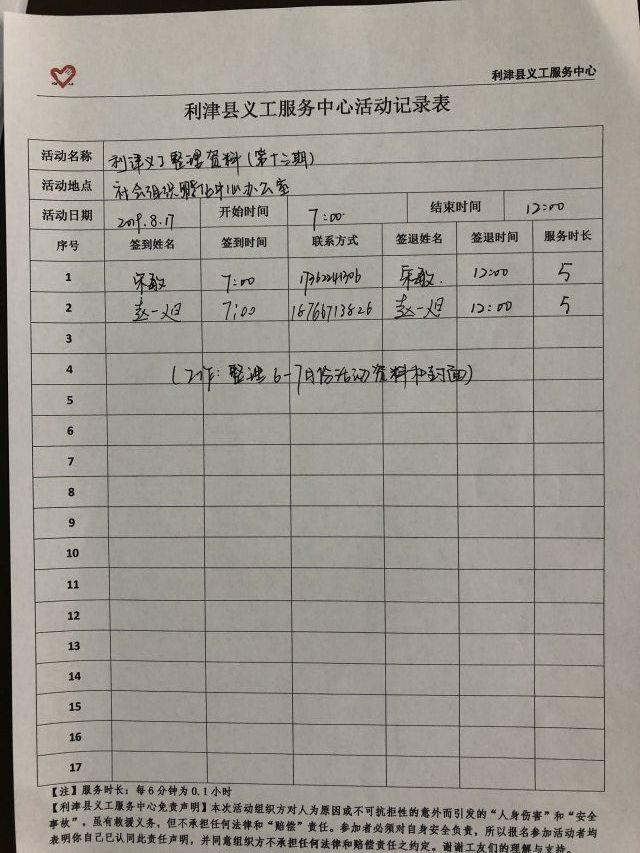 利津县义工服务中心
利津县义工服务中心活动记录表
活动名称 利津义工整理资料(第十二期)
活动地点 社会组织孵化中心办公室
活动日期 2019.8.17 开始时间 7:00 结束时间 12:00
序号 签到姓名 签到时间 联系方式 签退姓名 签退时间 服务时长
1 宋敏 7:00 17362241306 宋敏 12:00 5
2 赵一旭 7:00 18766713826 赵一旭 12:00 5
3
4 (工作:整理6-7月份活动资料和封面)
5
6
7
8
9
10
11
12
13
14
15
16
17
【注】服务时长:每6分钟为0.1小时
【利津县义工服务中心免责声明】本次活动组织方对人为原因或不可抗拒性的意外而引发的“人身伤害”和“安全
事故”,虽有救援义务,但不承担任何法律和“赔偿”责任。参加者必须对自身安全负责,所以报名参加活动者均
表明你自己已认同此责任声明,并同意组织方不承担任何法律和赔偿责任之约定。谢谢工友们的理解与支持。